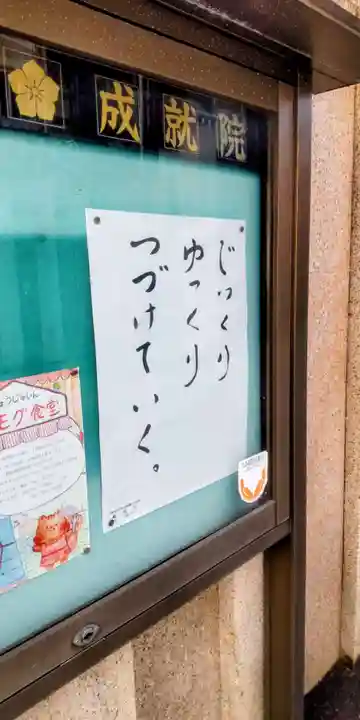 成就院
じっくり
ゆっくり
つづけていく。
ょうじゅいん
モグ食堂